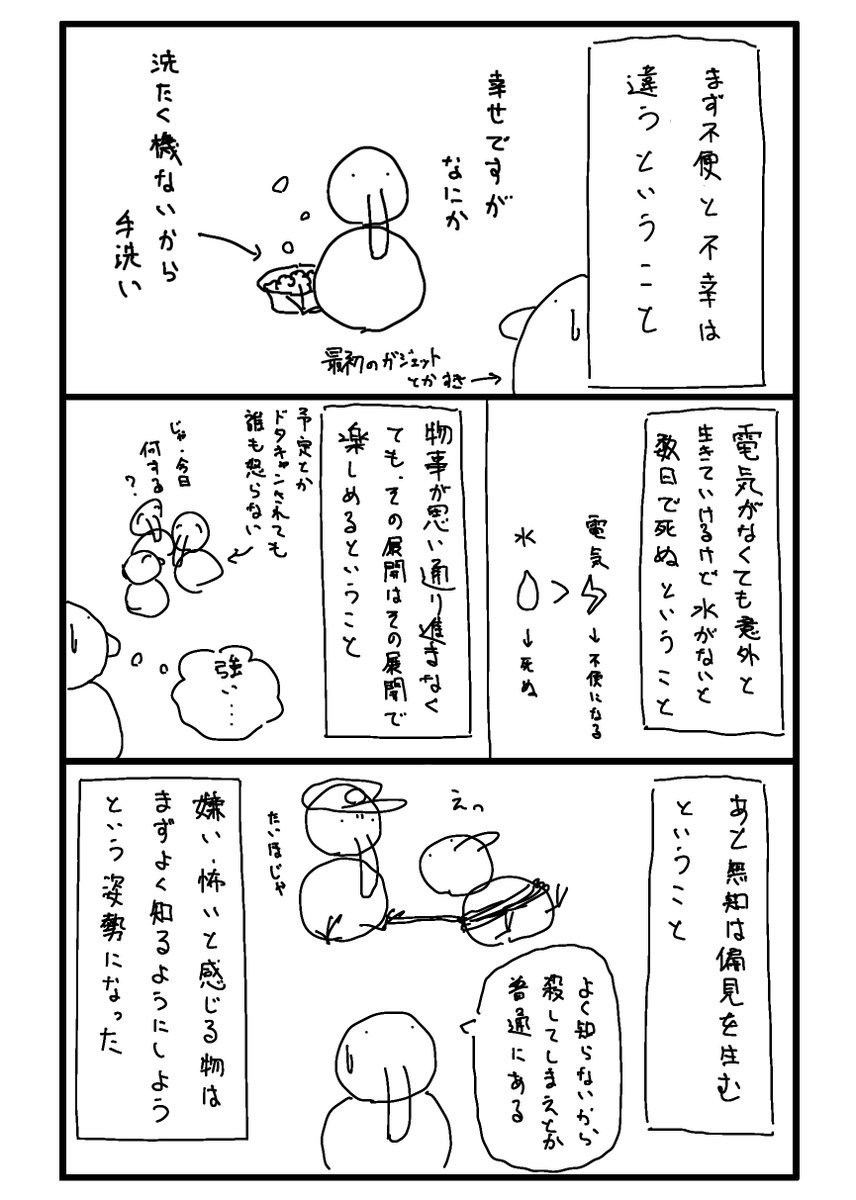 まず不便と不幸は
違うということ
幸せですが
なにか
洗たく機ないから
手洗い
最初のガジェット
とかすき
電気がなくても意外と
生きていけるけど水がないと
数日で死ぬということ
電気
↓不便になる
>
水
↓死ぬ
物事が思い通り進まなく
ても、その展開はその展開で
楽しめるということ
予定とか
ドタキャンされても
誰も怒らない
じゃ、今日
何する
?
強い……
あと無知は偏見を生む
ということ
えっ
たいほじゃ
よく知らないから、
殺してしまえとか
普通にある
嫌い・怖いと感じる物は
まずよく知るようにしよう
という姿勢になった